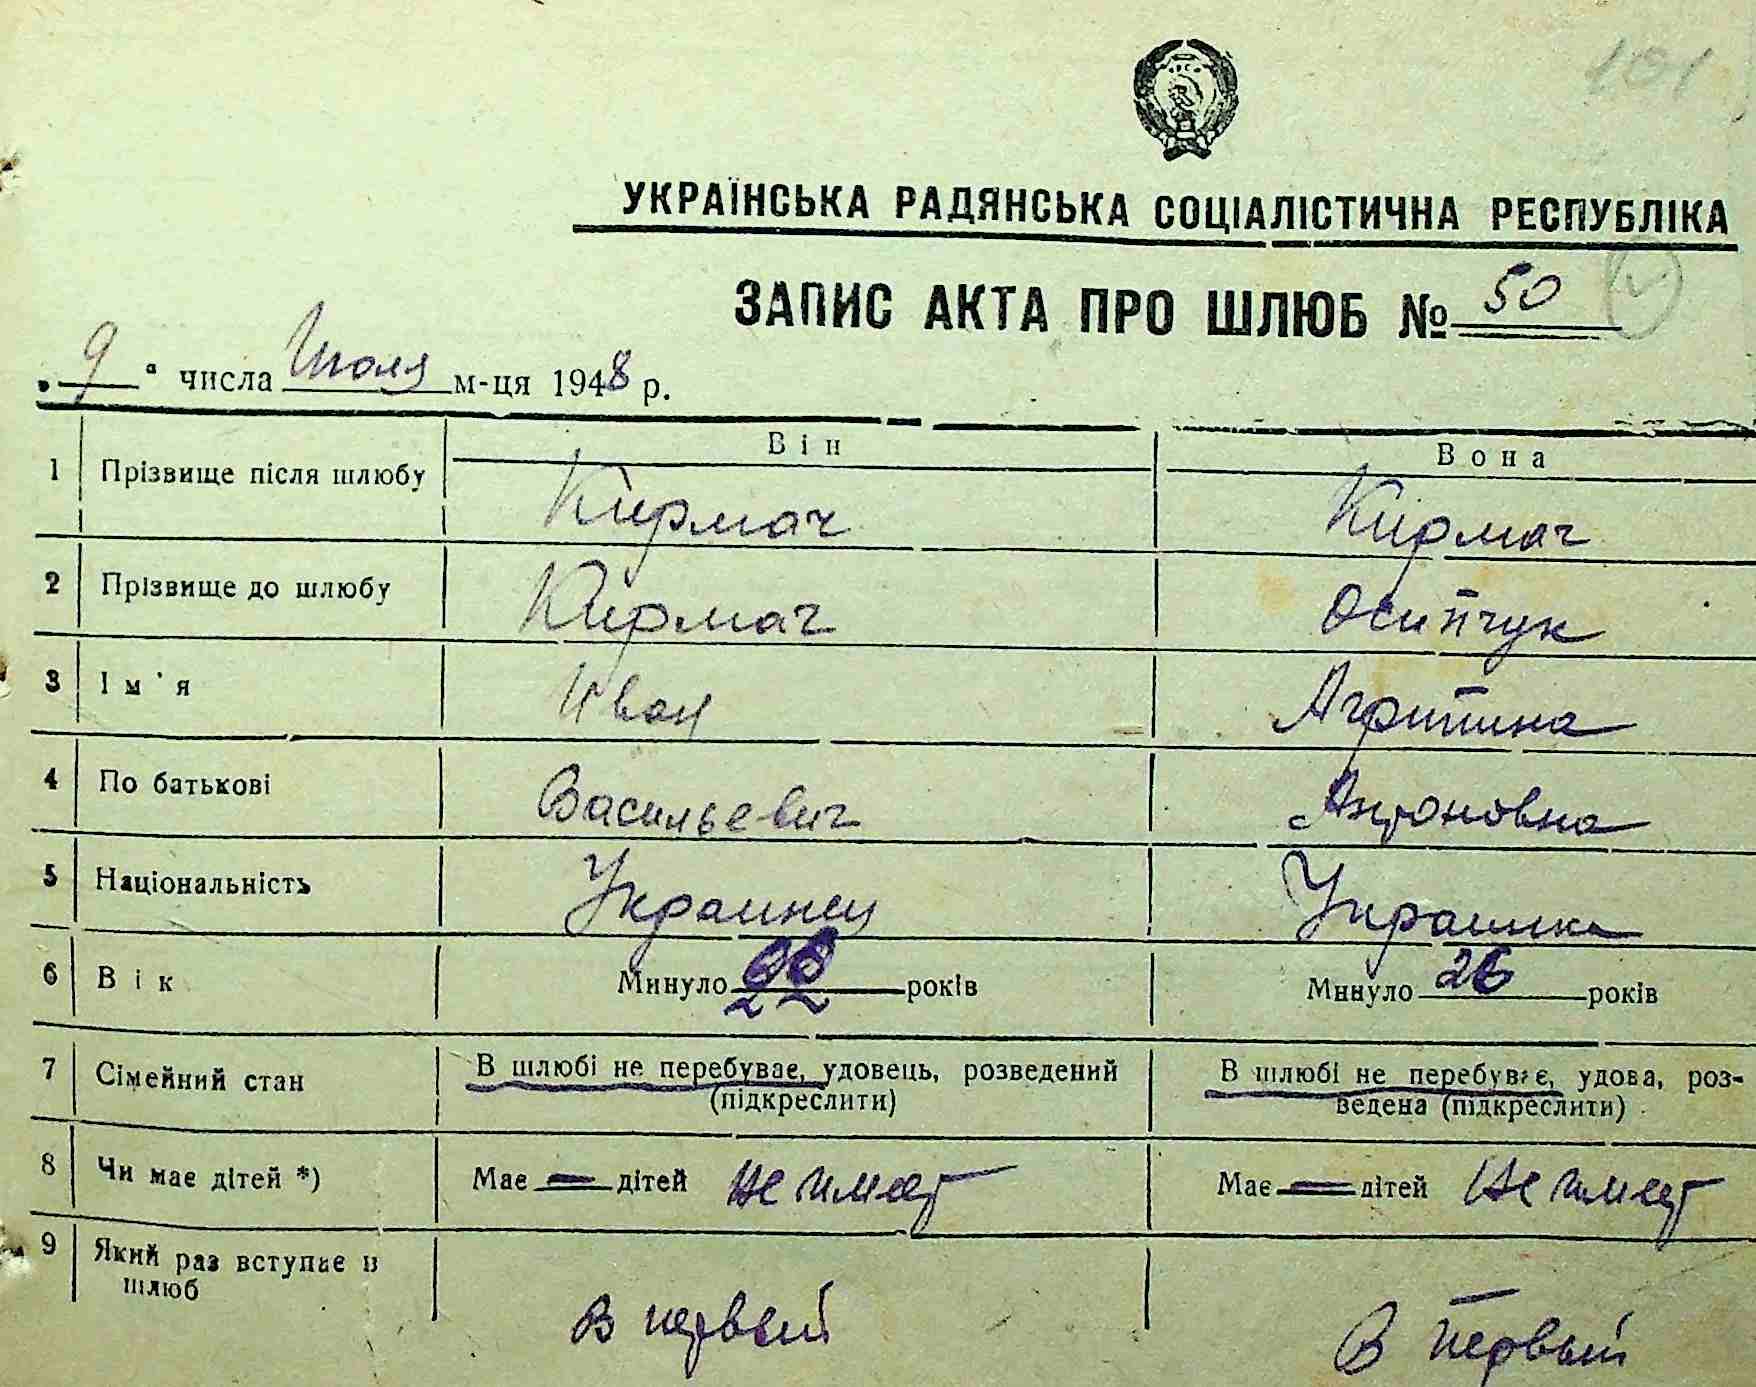 101
УКРАЇНСЬКА РАДЯНСЬКА СОЦІАЛІСТИЧНА РЕСПУБЛІКА
ЗАПИС АКТА ПРО ШЛЮБ № 50
„ 9 " числа Июля м-ця 1948 р.
Він Вона
1 Прізвище після шлюбу Кирмач Кирмач
2 Прізвище до шлюбу Кирмач Осипчук
3 Ім'я Иван Агрипина
4 По батькові Васильевич Антоновна
5 Національність Украинец Украинка
6 Вік Минуло 22 років Минуло 26 років
7 Сімейний стан В шлюбі не перебуває, удовець, розведений (підкреслити) В шлюбі не перебуває, удова, розведена (підкреслити)
8 Чи має дітей *) Має — дітей не имеет Має — дітей не имеет
9 Який раз вступає в шлюб В первый В первый